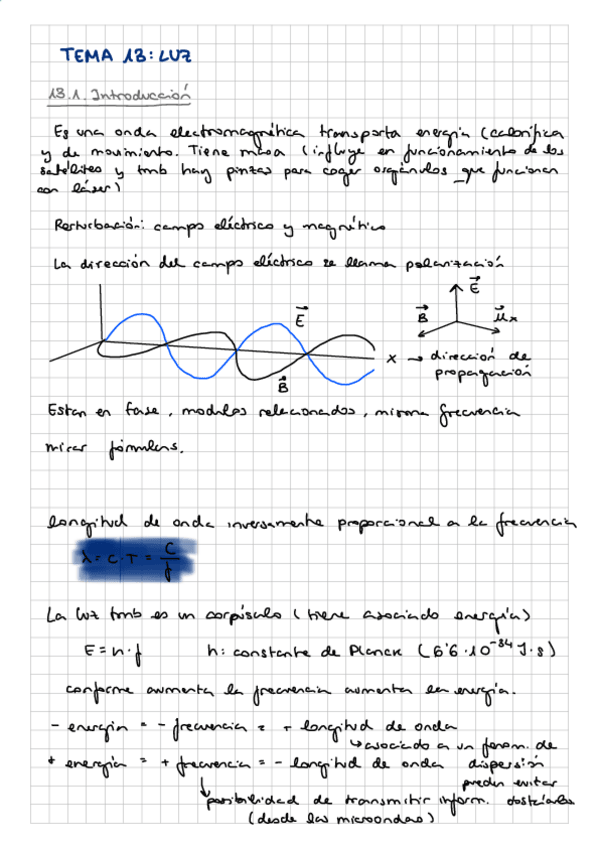 TEMA 13: LUZ
13.1. Introducción
Es una onda electromagnética transporta energía (calorífica
y de movimiento. Tiene masa (influye en funcionamiento de los
satélites y tmb hay pinzas para coger orgánulos que funcionan
con láser)
Perturbación: campo eléctrico y magnético
La dirección del campo eléctrico se llama polarización
E⃗
B⃗
E⃗
B⃗
u⃗x
x → dirección de
propagación
Estan en fase, modulos relacionados, misma frecuencia
mirar fórmulas.
longitud de onda inversamente proporcional a la frecuencia
λ = c·T = c/f
La luz tmb es un corpúsculo (tiene asociado energía)
E = h·f   h: constante de Planck (6'6·10⁻³⁴ J·s)
conforme aumenta la frecuencia aumenta la energía.
- energía = - frecuencia = + longitud de onda
↳ asociado a un fenom. de
+ energía = + frecuencia = - longitud de onda dispersión
pueden evitar
↳ posibilidad de transmitir inform. obstáculos
(desde las microondas)